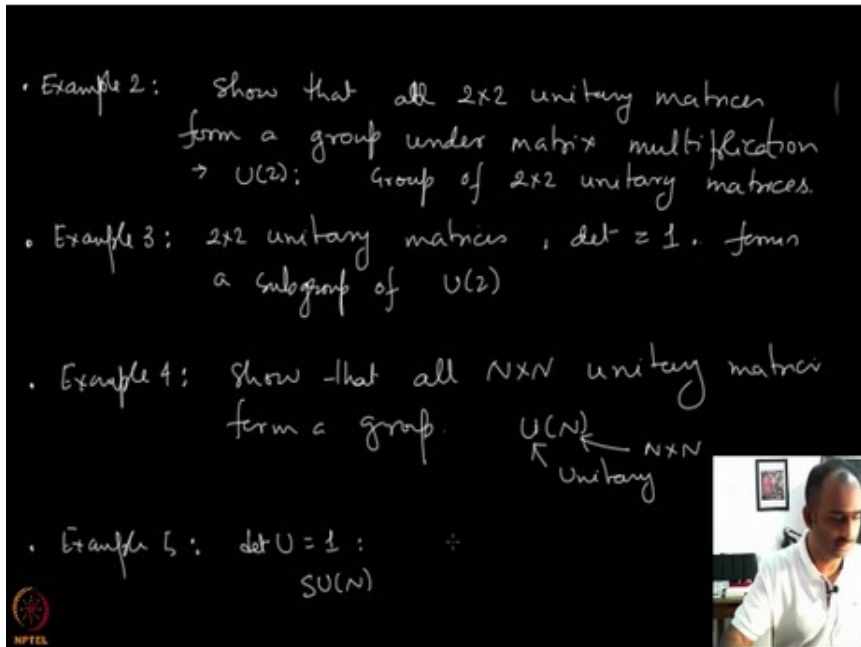 • Example 2: Show that all 2×2 unitary matrices
form a group under matrix multiplication
→ U(2): Group of 2×2 unitary matrices.
• Example 3: 2×2 unitary matrices, det = 1. forms
a subgroup of U(2)
• Example 4: Show that all N×N unitary matrices
form a group. U(N) ← N×N
↖ Unitary
• Example 5: det U = 1:
SU(N)
NPTEL